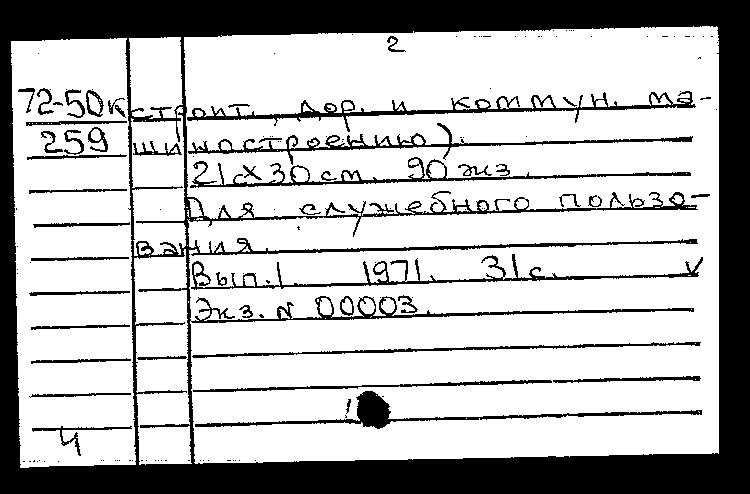 2
72-50к строит., дор. и коммун. ма-
259 шиностроению).
21х30 см. 90 экз.
Для служебного пользо-
вания.
Вып. 1. 1971. 31 с. V
Экз. N 00003.
4